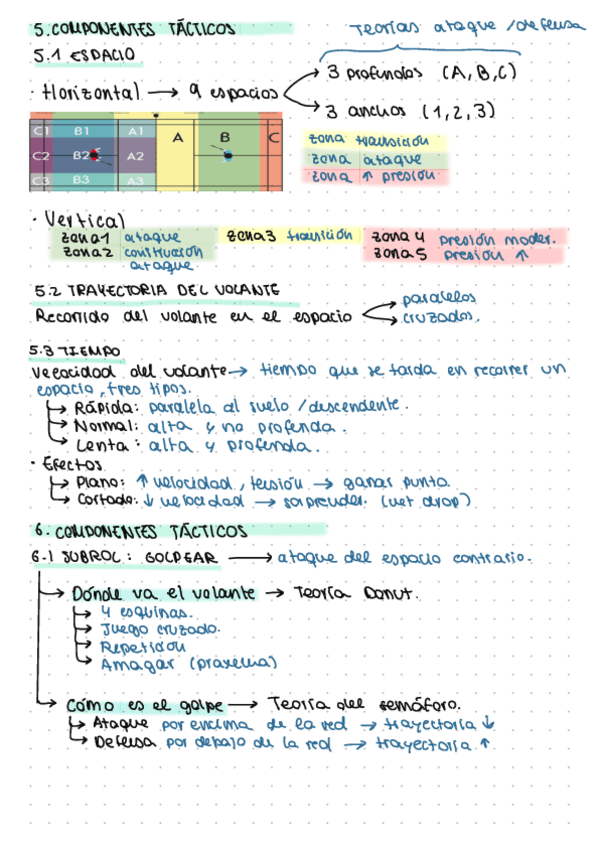 5. COMPONENTES TÁCTICOS
Teorías ataque / defensa
5.1 ESPACIO
· Horizontal → 9 espacios
3 profundos (A, B, C)
3 anchos (1, 2, 3)
C1 B1 A1
C2 B2 A2
C3 B3 A3
A B C
zona transición
zona ataque
zona ↑ presión
· Vertical
zona 1 ataque
zona 2 contrucción ataque
zona 3 transición
zona 4 presión moder.
zona 5 presión ↑
5.2 TRAYECTORIA DEL VOLANTE
Recorrido del volante en el espacio
paralelos
cruzados.
5.3 TIEMPO
velocidad del volante → tiempo que se tarda en recorrer un
espacio, tres tipos.
↳ Rápida: paralela al suelo / descendente.
↳ Normal: alta y no profunda.
↳ Lenta: alta y profunda.
· Efectos
↳ Plano: ↑ velocidad, tensión → ganar punto
↳ Cortado: ↓ velocidad → sorprender. (net drop)
6. COMPONENTES TÁCTICOS
6.1 SUBROL: GOLPEAR → ataque del espacio contrario.
→ Dónde va el volante → Teoría Donut.
↳ 4 esquinas.
↳ Juego cruzado.
↳ Repetición
↳ Amagar (praxema)
→ Cómo es el golpe → Teoría del semáforo.
↳ Ataque por encima de la red → trayectoria ↓
↳ Defensa por debajo de la red → trayectoria ↑